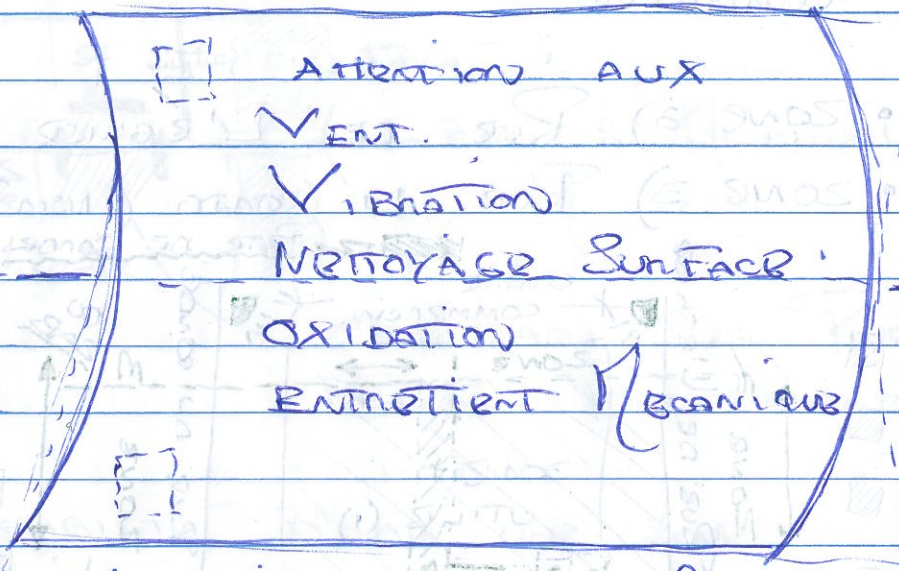 Attention aux
Vent.
Vibration
Nettoyage Surface.
Oxidation
Entretient Mecanique